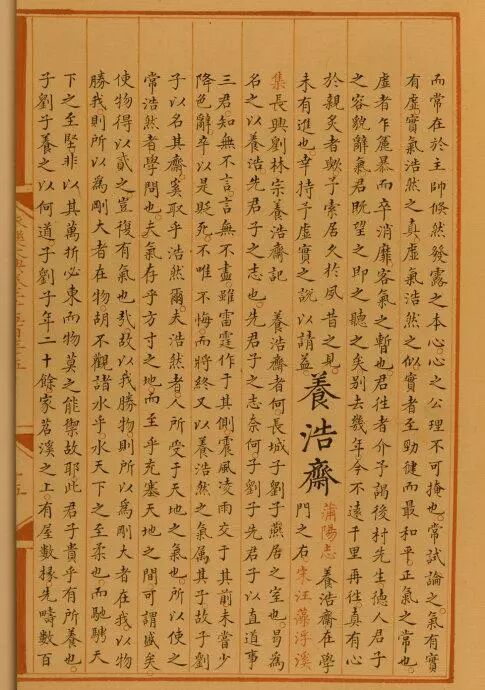 而常在於主帥倏然發露之本心心之公理不可掩也常試論之氣有實
有虛實氣浩然之真虛氣浩然之似實者至勁健而最和平正氣之常也
虛者乍麄暴而卒消靡客氣之暫也君徃者介予謁後村先生德人君子
之容貌辭氣君旣望之即之聽之矣别去幾年今不遠千里再徃真有心
於親炙者歟予索居久於夙昔之見
未有進也幸持子虛實之說以請益
養浩齋
莆陽志 養浩齋在學
門之右 宋汪藻浮溪
集長興劉林宗養浩齋記 養浩齋者何長城子劉子燕居之室也曷為
名之以養浩先君子之志也先君子之志奈何子劉子先君子以直道事
三君知無不言言無不盡雖雷霆作于其側震風凌雨交于其前未嘗少
降色辭卒以是貶死不唯不悔而將終又以養浩然之氣属其子故子劉
子以名其齋奚取乎浩然爾夫浩然者人所受于天地之氣也所以使之
常浩然者學問也夫氣存乎方寸之地而至乎充塞天地之間可謂盛矣
使物得以貳之豈復有氣也哉故以我勝物則所以為剛大者在我以物
勝我則所以為剛大者在物胡不觀諸水乎水天下之至柔也而馳騁天
下之至堅非以其萬折必東而物莫之能禦故耶此君子貴乎有所養也
子劉子養之以何道子劉子年二十餘家苕溪之上有屋數椽先疇數百